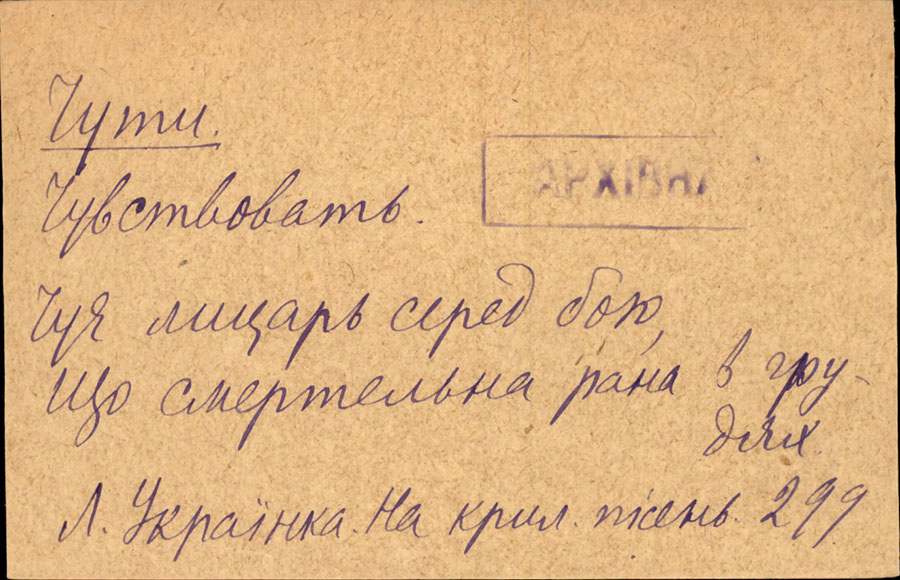 Чути.
АРХІВНА
Чувствовать.
Чує лицарь серед бою,
Що смертельна рана в гру-
дях.
Л. Українка. На крил. пісень. 299